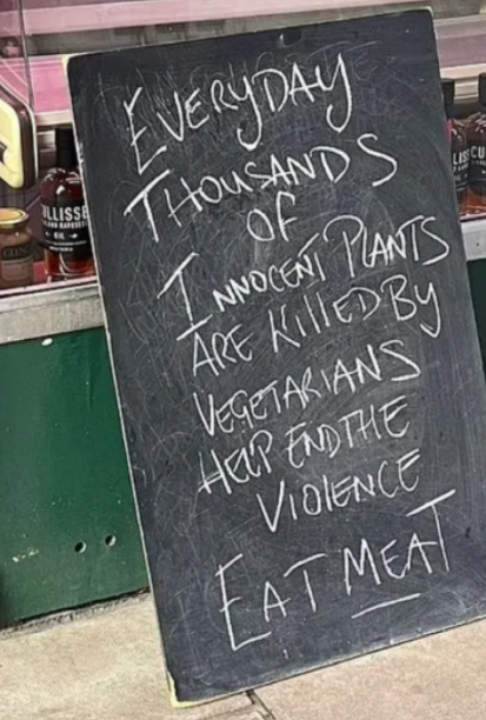 EVERYDAY
THOUSANDS
OF
INNOCENT PLANTS
ARE KILLED BY
VEGETARIANS
HELP END THE
VIOLENCE
EAT MEAT